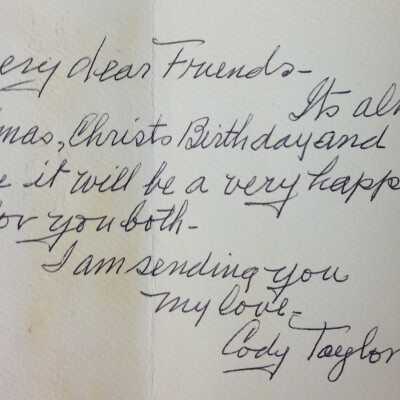 ery dear Friends-
Its al
mas, Christs Birthday and
it will be a very happ
for you both-
I am sending you
my love-
Cody Taylor